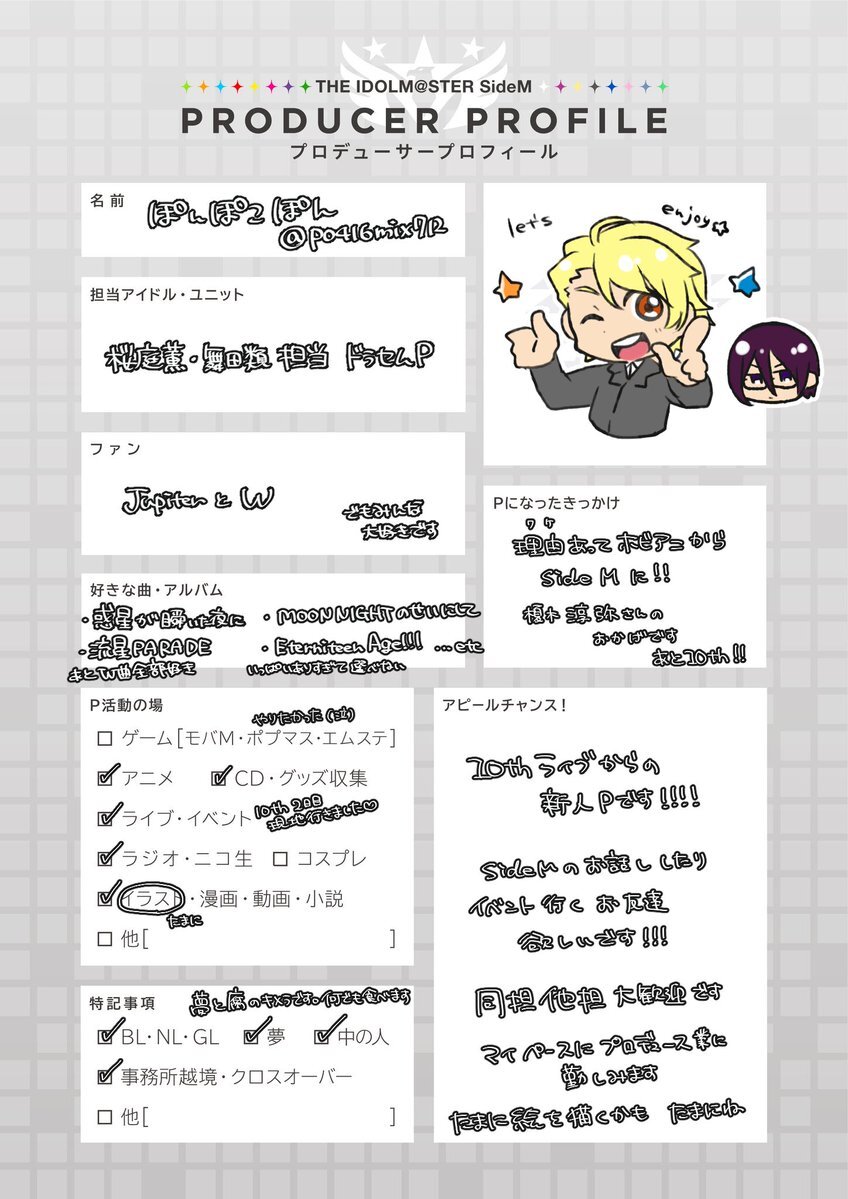 THE IDOLM@STER SideM
PRODUCER PROFILE
プロデューサープロフィール
名前
ぽんぽこぽん
@po416mix712
let's enjoy☆
担当アイドル・ユニット
桜庭薫・舞田類 担当 ドラセムP
ファン
Jupiterと W
でもみんな
大好きです
Pになったきっかけ
ワケ
理由あって ホビアニから
SideM に!!
榎木淳弥さんの
おかげです
あと10th!!
好きな曲・アルバム
・惑星が瞬いた夜に ・MOON NIGHTのせいにして
・流星PARADE ・Eterniteen Age!!! …etc
あとW曲全部好き いっぱいありすぎて選べねい
P活動の場
やりたかった(泣)
□ ゲーム[モバM・ポプマス・エムステ]
☑ アニメ ☑ CD・グッズ収集
☑ ライブ・イベント 10th 2日目
現地行きました♡
☑ ラジオ・ニコ生 □ コスプレ
☑ イラスト・漫画・動画・小説
たまに
□ 他[ ]
特記事項 夢と腐のキメラです。何でも食べます
☑ BL・NL・GL ☑ 夢 ☑ 中の人
☑ 事務所越境・クロスオーバー
□ 他[ ]
アピールチャンス!
10thライブからの
新人Pです!!!!
SideMのお話ししたり
イベント行く お友達
欲しいです!!!
同担他担 大歓迎です
マイペースに プロデュース業に
勤しみます
たまに絵を描くかも たまにね